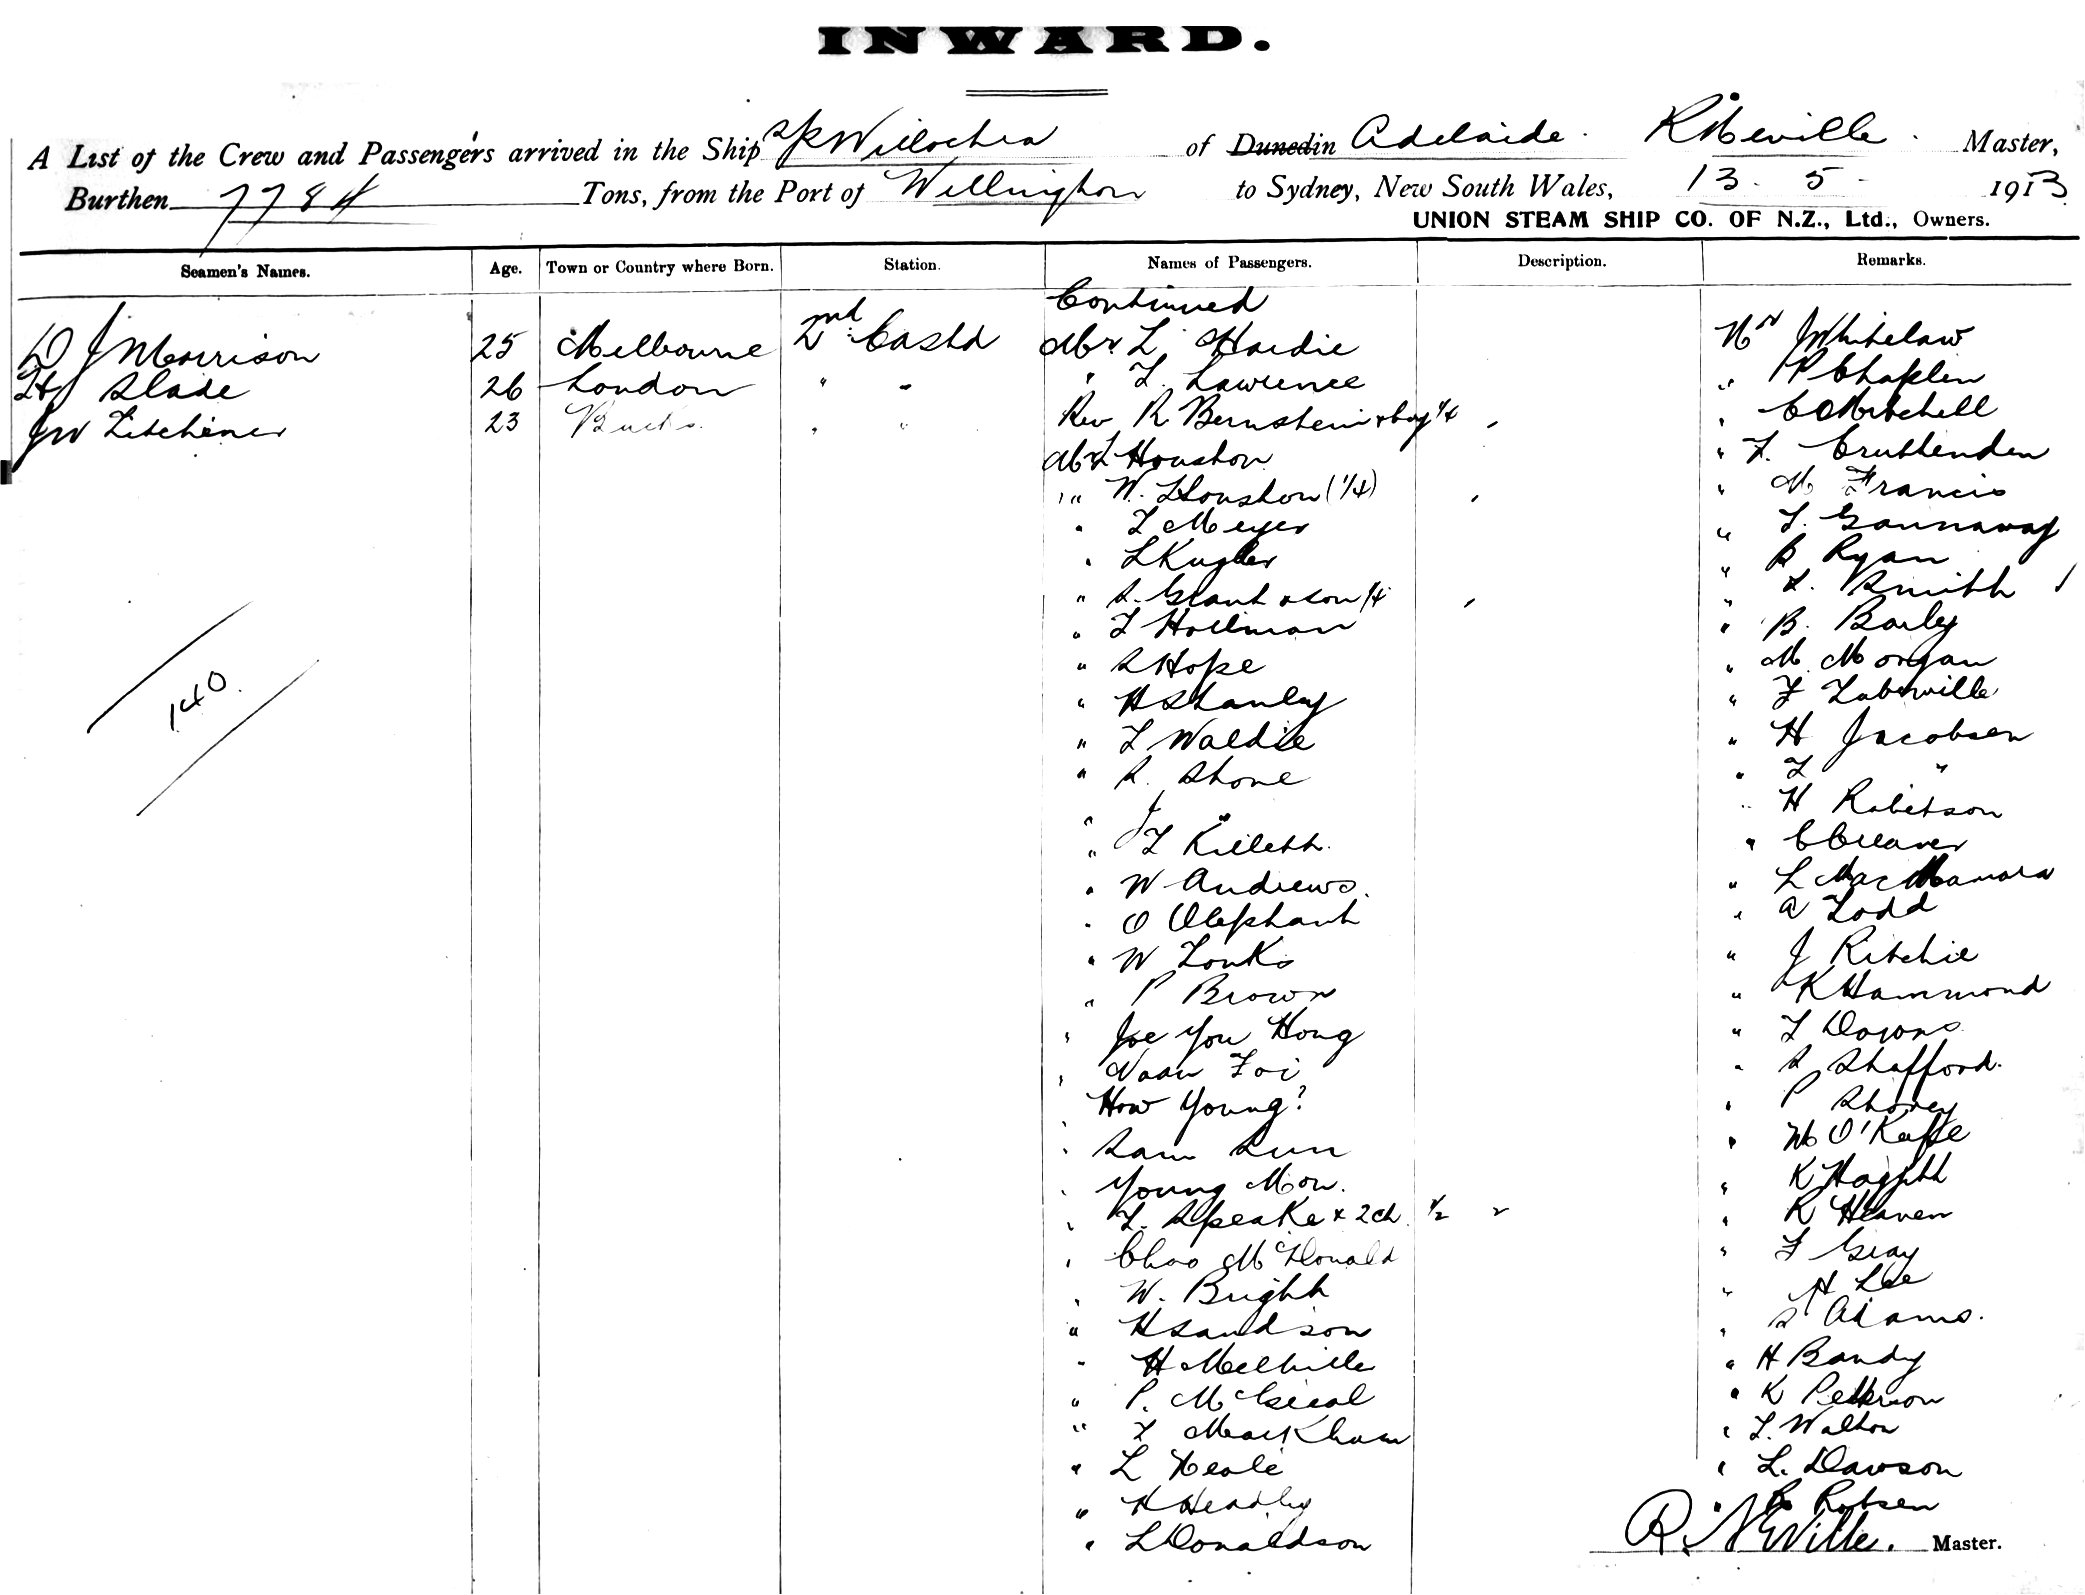 INWARD.
A List of the Crew and Passengers arrived in the Ship Willochra of Dunedin Adelaide. R Neville. Master,
Burthen 7784 Tons, from the Port of Wellington to Sydney, New South Wales, 13. 5. 1913
UNION STEAM SHIP CO. OF N.Z., Ltd., Owners.
Seamen's Names. Age. Town or Country where Born. Station. Names of Passengers. Description. Remarks.
D J Morrison 25 Melbourne 2nd Cabin
H Slade 26 London " "
JW Titchener 23 Bucks " "
140.
Continued
Mr L Hardie
" T. Lawrence
Rev R Bernstein & boy 1/4
Mr T Houston
" " W. Houston (1/4)
" T Meyer
" L Kugler
" S. Grant & son 1/4
" T Hollman
" S Hope
" H Stanley
" T Waldie
" S. Stone
" J "
" T Killett.
" W Andrews.
" O Olephant
" W Tonks
" P Brown
" Joe You Hong
" Naan Foi
" How Young?
" Sam Sun
" Young Mon.
" T. Speake & 2 ch. 1/2 2
" Chas McDonald
" W. Bright
" H Sandson
" H Melville
" P. McGieal
" T Markham
" L Neale
" H Headley
" L Donaldson
Mr J Whitelaw
" P Chaplin
" C Mitchell
" F. Cruttenden
" M Francis
" T. Gannaway
" B Ryan
" S. Smith 1
" B. Barley
" M. Morgan
" F Tuberville
" H Jacobsen
" T "
" H Robetson
" C Cleaver
" L MacNamara
" A Todd
" J Ritchie
" K Hammond
" T Downs
" S Stafford.
" P Storey
" M O'Kaffe
" K Haggitt
" R Heaven
" F Gray
" H Lee
" S Adams.
" H Bandy
" K Petterson
" T. Walton
" L. Dawson
" Robsen
R. Neville. Master.